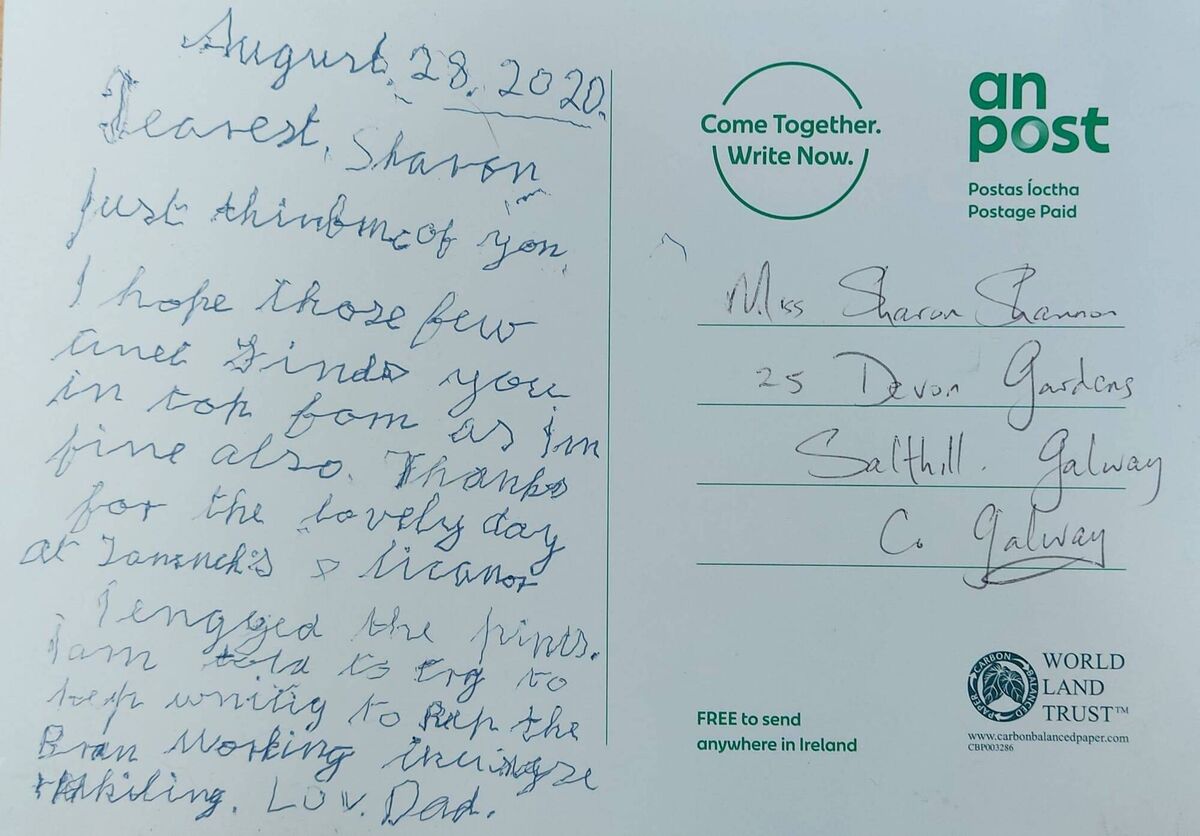 August. 28. 2020.
Dearest, Sharon
Just thinkinc of you.
I hope those few
Lines Finds you
in top fom as Im
fine also. Thanks
for the lovely day
at &
I engyed the pints.
I am told to try to
kep writig to kep the
Bran Working
Luv. Dad.
Come Together.
Write Now.
an
post
Postas Íoctha
Postage Paid
Miss Sharon Shannon
25 Devon Gardens
Salthill. Galway
Co Galway
FREE to send
anywhere in Ireland
CARBON BALANCED PAPER
WORLD
LAND
TRUST™
www.carbonbalancedpaper.com
CBP003286